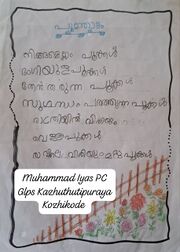 പൂന്തോട്ടം
നിങ്ങളെല്ലാം പൂക്കൾ
ഭംഗിയുള്ള പൂക്കൾ
തേൻ തരുന്ന പൂക്കൾ
സുഗന്ധം പരത്തുന്ന പൂക്കൾ
രാത്രിയിൽ വിരിയും
വെള്ളപൂക്കൾ
പൂക്കൾ
Muhammad Iyas PC
Glps Kazhuthutipuraya
Kozhikode